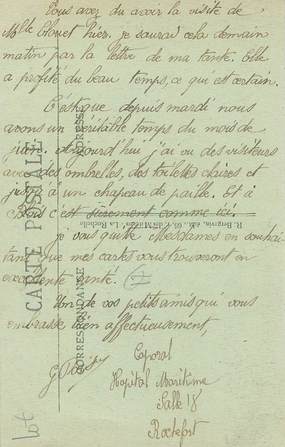 Vous avez du avoir la visite de
Melle Blouet hier. je saurai cela demain
matin par la lettre de ma tante. Elle
a profité du beau temps, ce qui est certain.
C'est que depuis mardi nous
avons un véritable temps du mois de
juin. Aujourd'hui j'ai vu des visiteurs
avec des ombrelles, des toilettes claires et
jusqu'à un chapeau de paille. Et à
Blois c'est sûrement comme ici.
Je vous quitte Mesdames en souhai-
tant que mes cartes vous trouveront en
excellente santé.
Un de vos petits amis qui vous
embrasse bien affectueusement,
Caporal
Hopital Maritime
Salle 18
Rochefort
CARTE POSTALE
CORRESPONDANCE
ADRESSE
La Rochelle
Lot